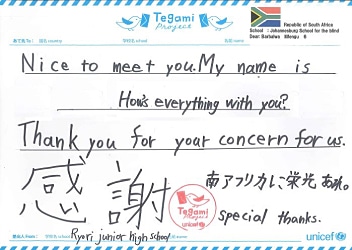 Tegami
Project
Republic of South Africa
School : Johannesburg School for the blind
Dear: Barbalwa Mfengu 6
Nice to meet you. My name is
How's everything with you?
Thank you for your concern for us.
感謝
南アフリカに、栄光あれ。
Tegami
Project
unicef
special thanks.
Ryori junior high school
unicef